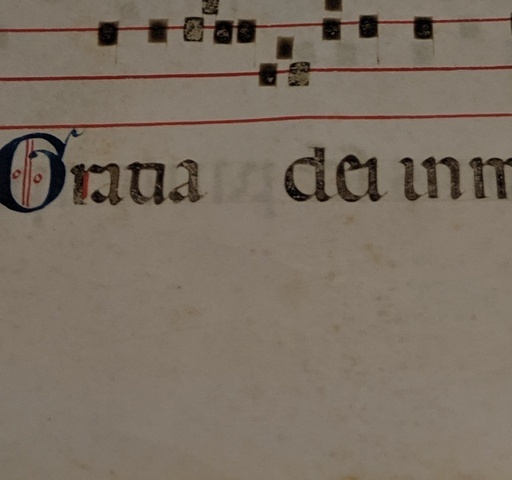 Gratia dei in m